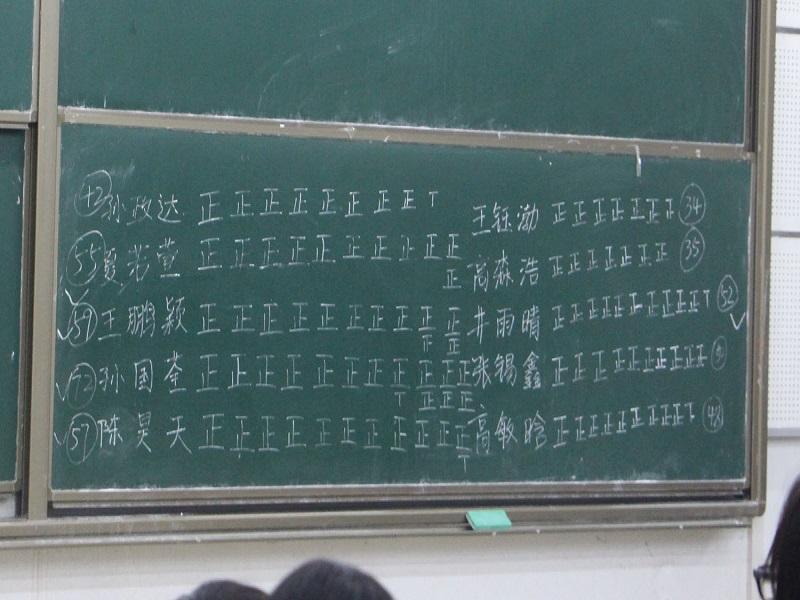 42 孙政达 正 正 正 正 正 正 正 正 T
王钰渤 正 正 正 正 正 正 正 34
55 夏若萱 正 正 正 正 正 正 正 正 正 正
正
高森浩 正 正 正 正 正 正 正 35
王鹏颖 正 正 正 正 正 正 正 正 正 正
正 正
井雨晴 正 正 正 正 正 正 正 正 正 正 T 52
72 孙国荃 正 正 正 正 正 正 正 正 正 正 正
T 正 正 正
张锡鑫 正 正 正 正 正 正 正 正 正 正
57 陈昊天 正 正 正 正 正 正 正 正 正 正 正
T
高敏晗 正 正 正 正 正 正 正 正 正 48